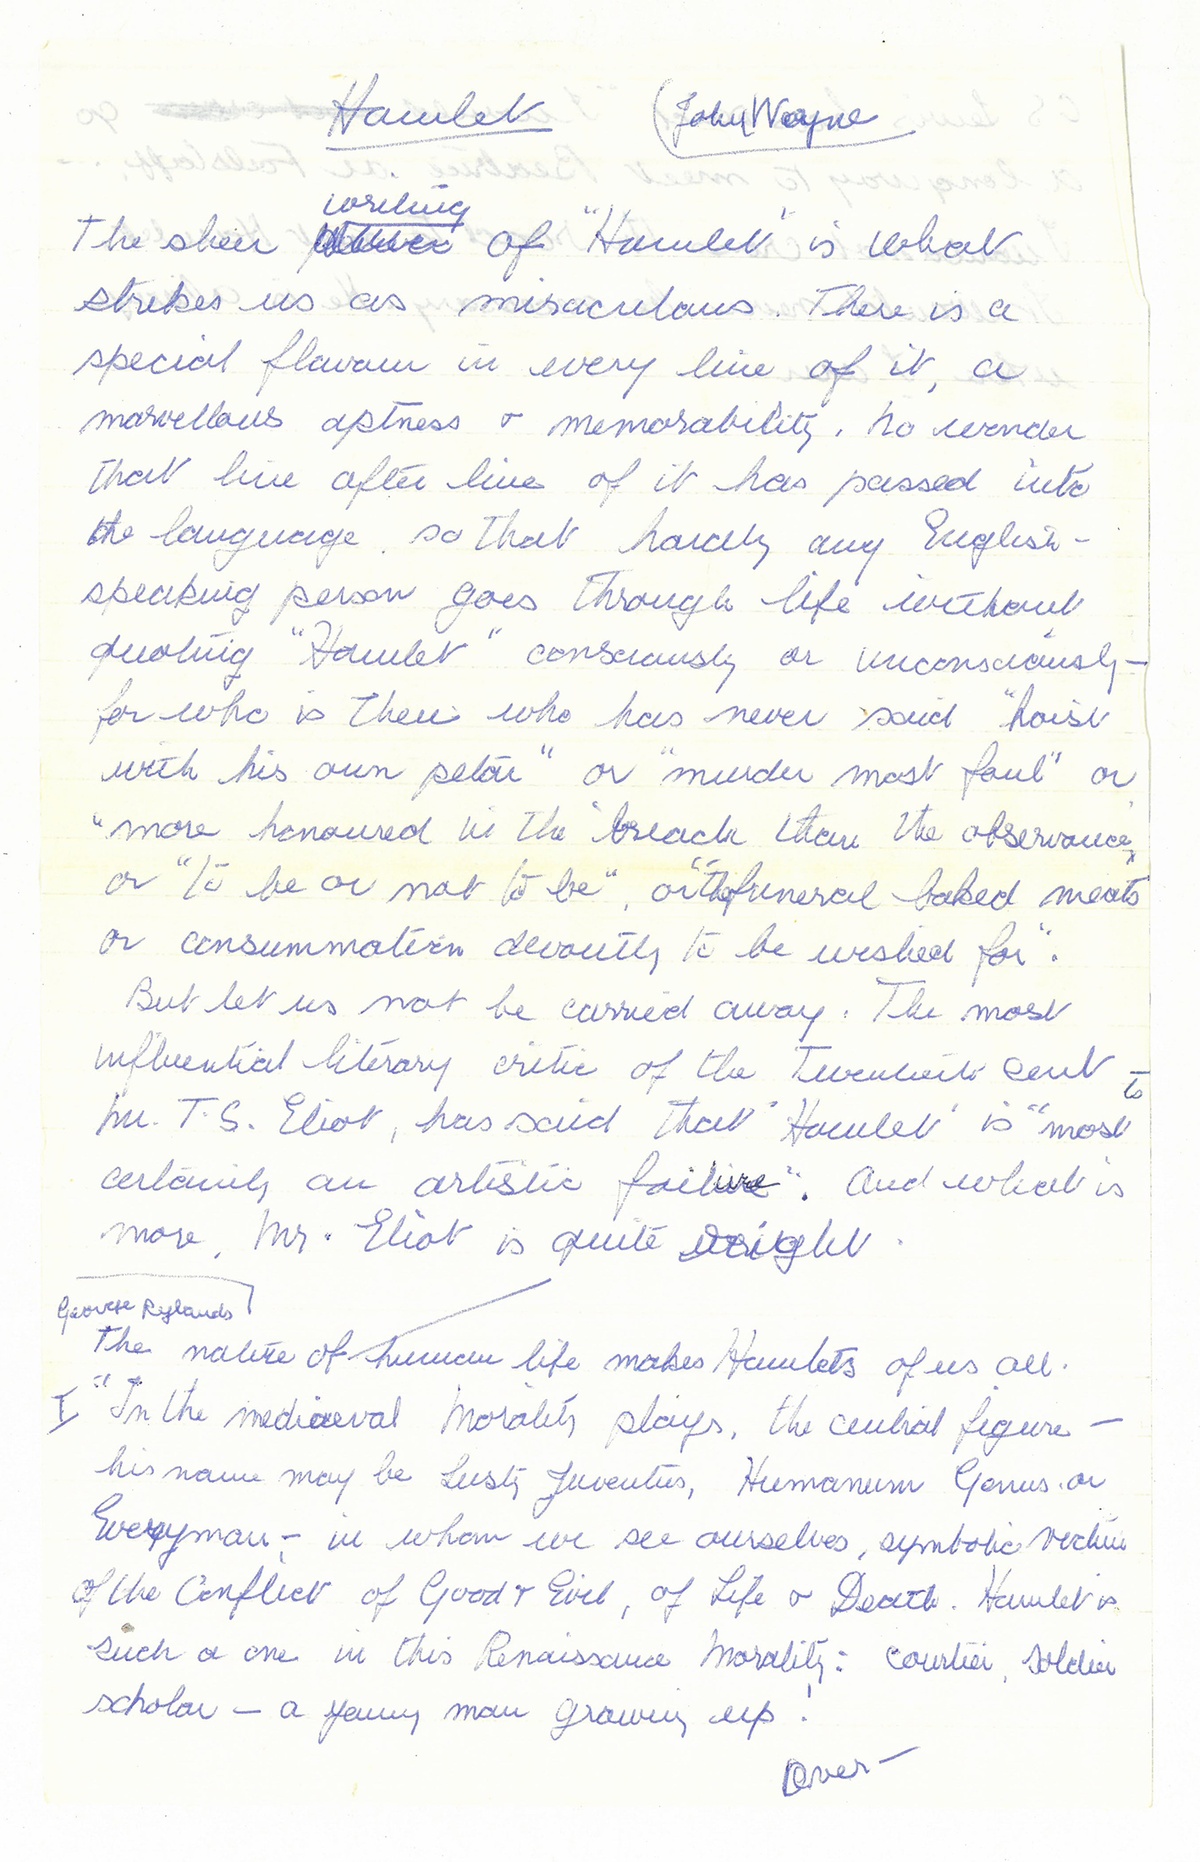 Hamlet (John Wayne
writing
The sheer of "Hamlet" is what
strikes us as miraculous. There is a
special flavour in every line of it, a
marvellous aptness & memorability. No wonder
that line after line of it has passed into
the language, so that hardly any English-
speaking person goes through life without
quoting "Hamlet" consciously or unconsciously –
for who is there who has never said "hoist
with his own petar" or "murder most foul" or
"more honoured in the breach than the observance"
or "to be or not to be", or "the funeral baked meats"
or consummation devoutly to be wished for".
But let us not be carried away. The most
influential literary critic of the Twentieth cent –
Mr. T.S. Eliot, has said that "Hamlet" is "most
certainly an artistic failure". And what is
more, Mr. Eliot is quite right.
George Rylands
The nature of human life makes Hamlets of us all.
I "In the mediaeval Morality plays, the central figure –
his name may be Lusty Juventus, Humanum Genus or
Everyman – in whom we see ourselves, symbolic victim
of the Conflict of Good & Evil, of Life & Death. Hamlet is
such a one in this Renaissance Morality: courtier, soldier
scholar – a young man growing up!
Over –